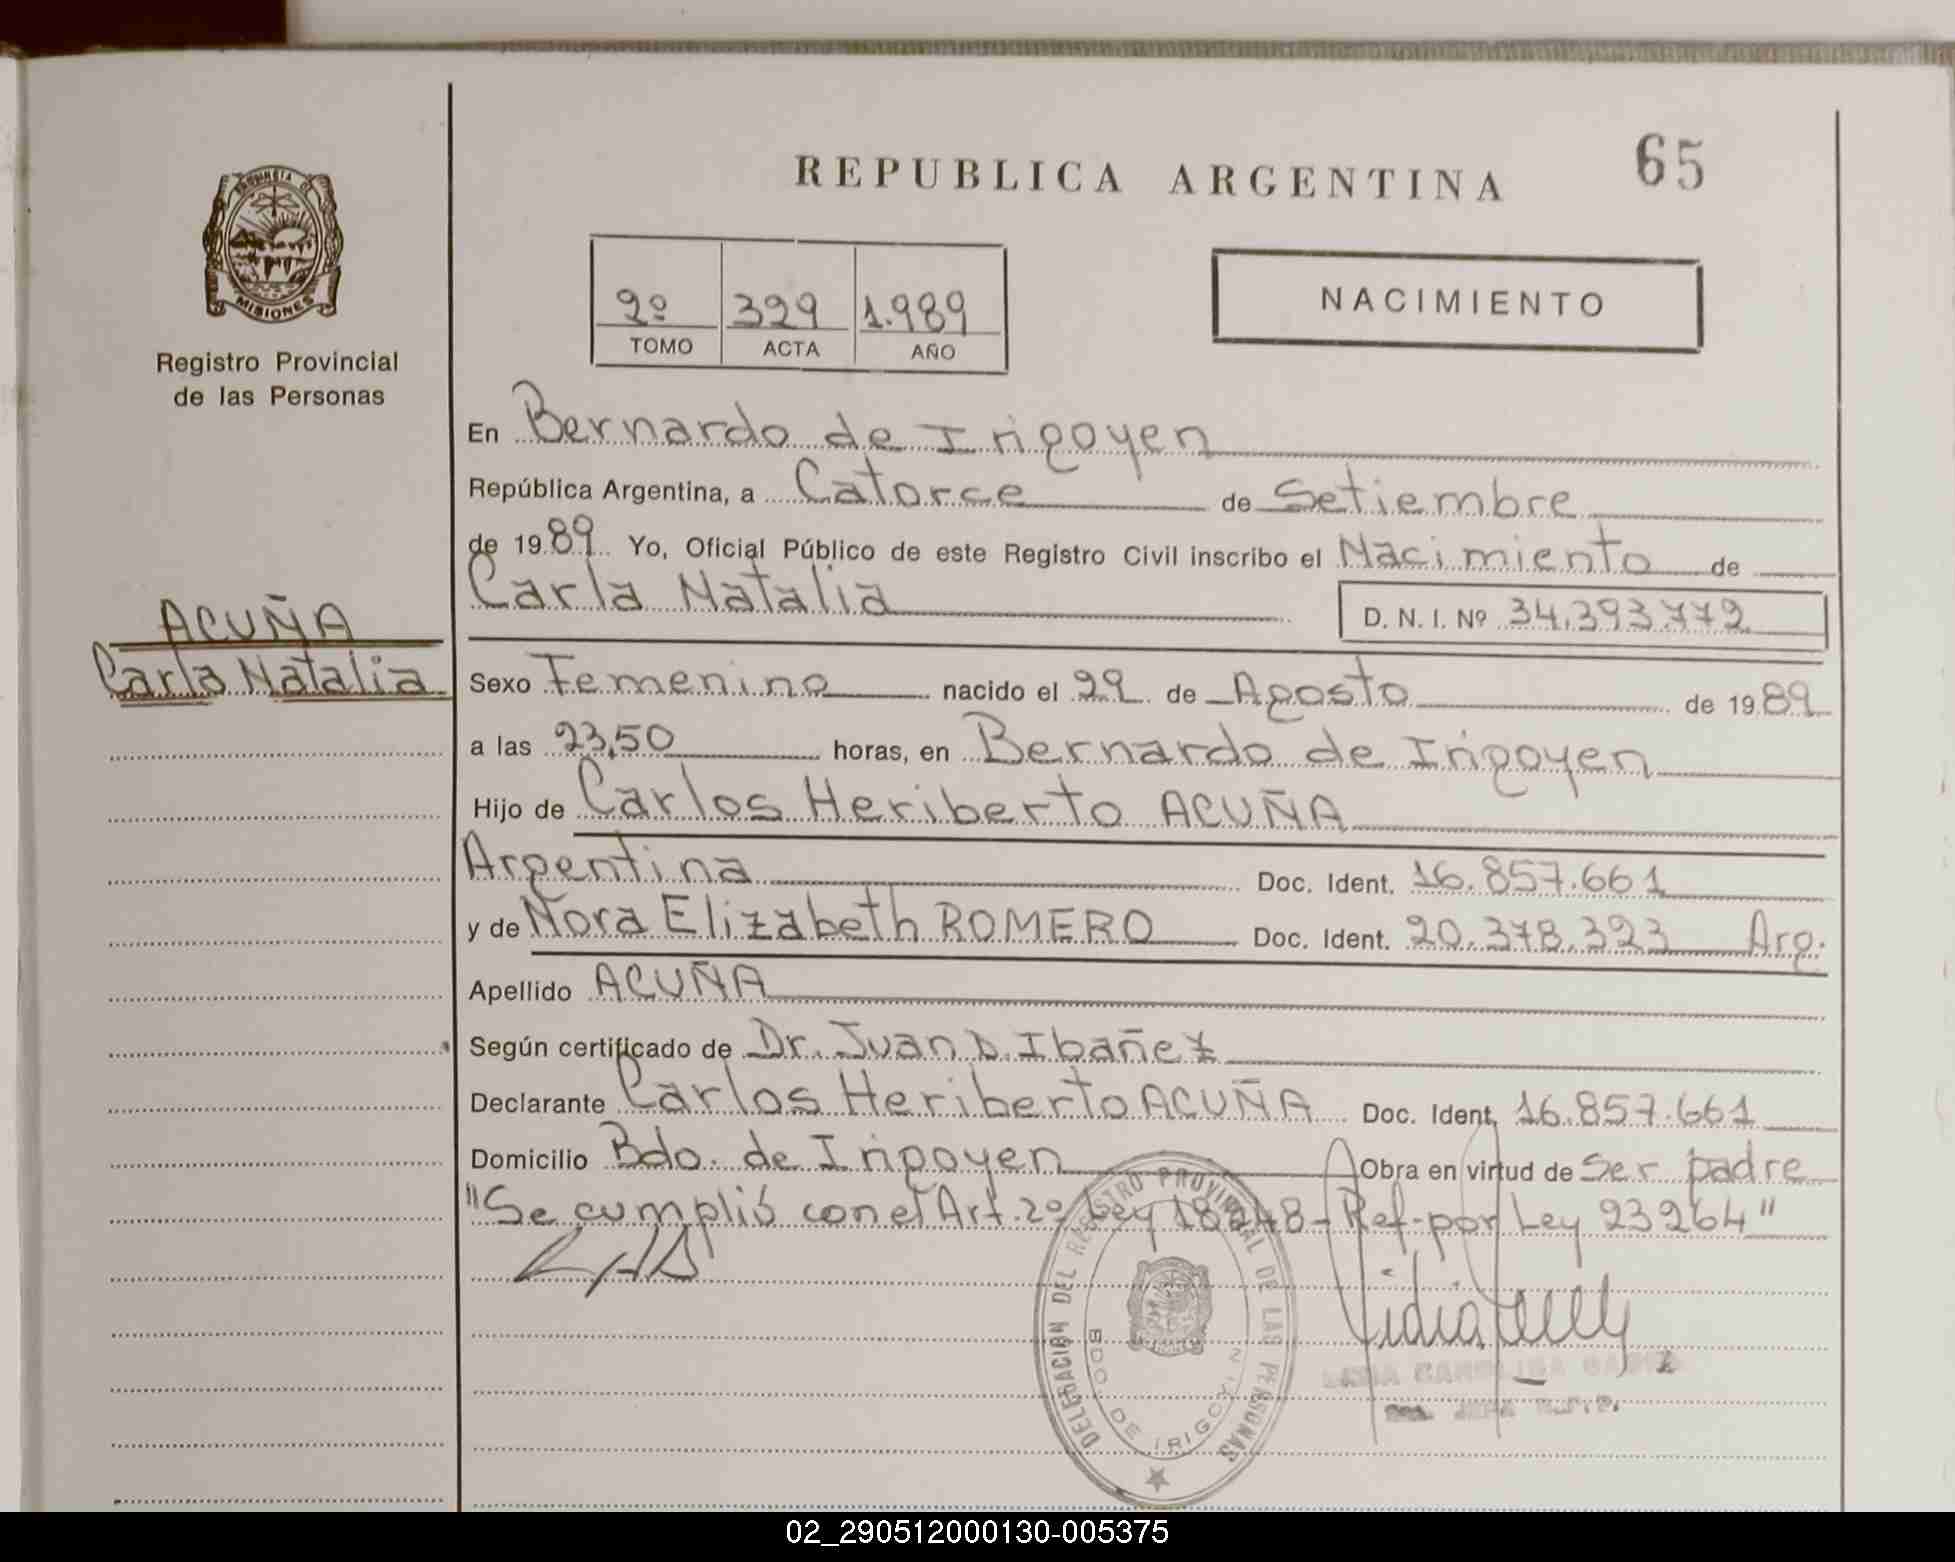 65
REPUBLICA ARGENTINA
PROVINCIA DE
MISIONES
Registro Provincial
de las Personas
2º 329 1.989
TOMO ACTA AÑO
NACIMIENTO
En Bernardo de Irigoyen
República Argentina, a Catorce de Setiembre
de 1989 Yo, Oficial Público de este Registro Civil inscribo el Nacimiento de
Carla Natalia D. N. I. Nº 34.393.772
ACUÑA
Carla Natalia
Sexo Femenino nacido el 29 de Agosto de 1989
a las 23,50 horas, en Bernardo de Irigoyen
Hijo de Carlos Heriberto ACUÑA
Argentina Doc. Ident. 16.857.661
y de Nora Elizabeth ROMERO Doc. Ident. 20.378.323 Arg.
Apellido ACUÑA
Según certificado de Dr. Juan D. Ibañez
Declarante Carlos Heriberto ACUÑA Doc. Ident. 16.857.661
Domicilio Bdo. de Irigoyen Obra en virtud de Ser padre
"Se cumplió con el Art. 2º Ley 18248 - Ref. por Ley 23264"
DELEGACION DEL REGISTRO PROVINCIAL DE LAS PERSONAS
BDO. DE IRIGOYEN
02_290512000130-005375